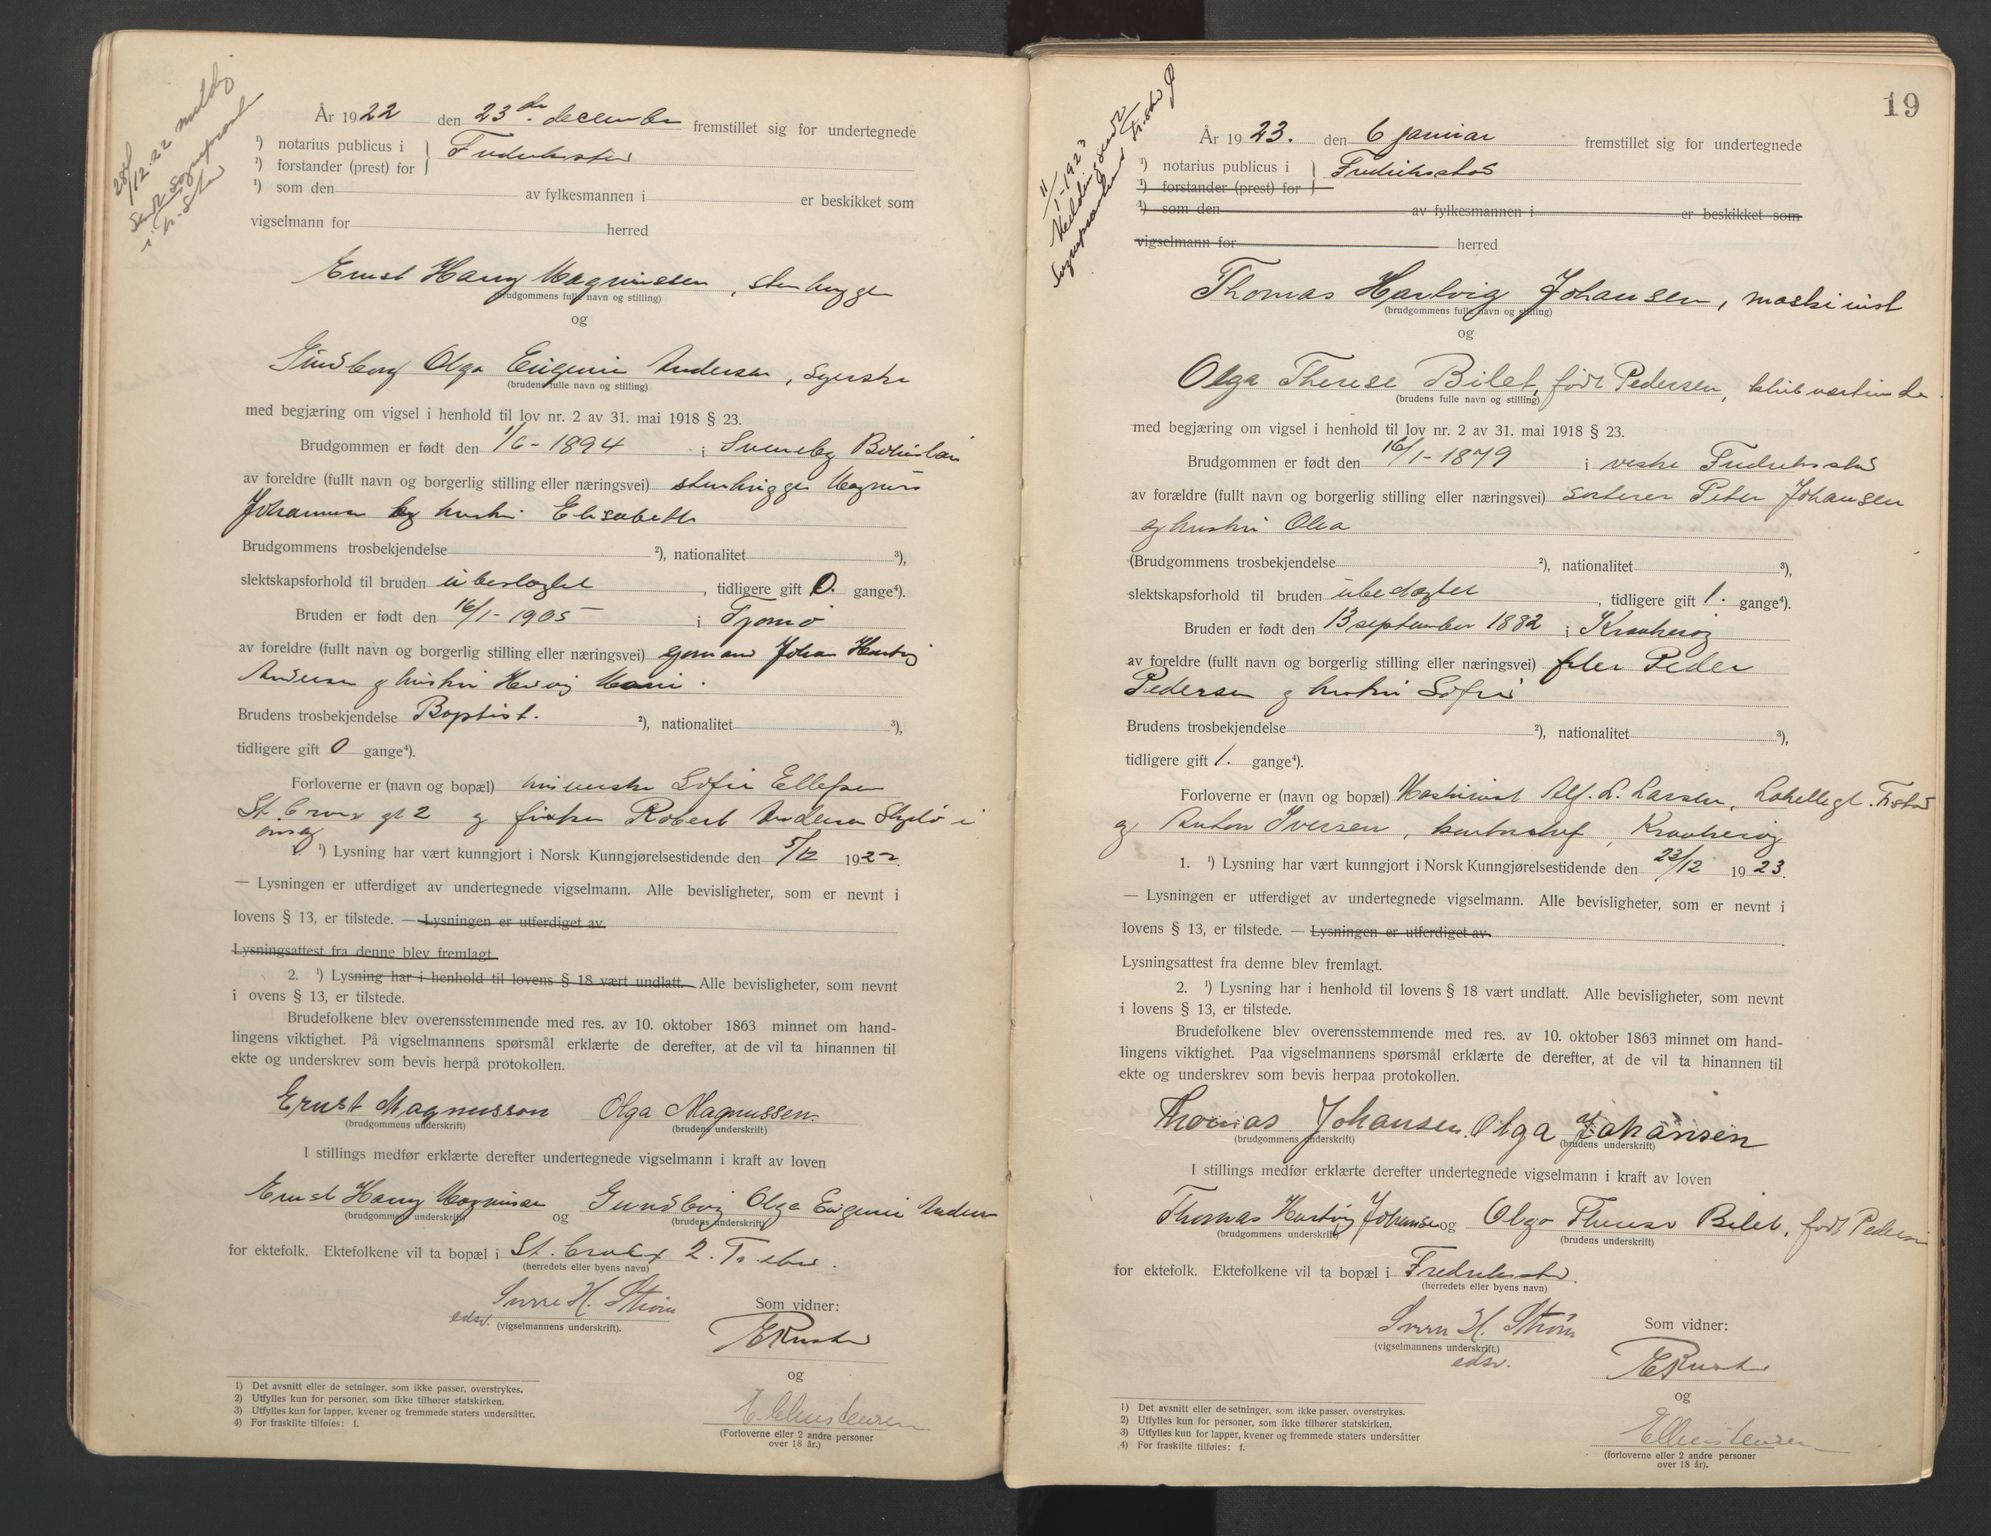 28/12.22 melding
sendt sognepresten
i Fr.stad
År 1922 den 23de december fremstillet sig for undertegnede
¹) notarius publicus i } Fredriksstad
¹) forstander (prest) for
¹) som den av fylkesmannen i er beskikket som
vigselmann for herred
Ernst Harry Magnussen, stenhugger
(brudgommens fulle navn og stilling)
og
Gundborg Olga Eugenie Andersen, syerske
(brudens fulle navn og stilling)
med begjæring om vigsel i henhold til lov nr. 2 av 31. mai 1918 § 23.
Brudgommen er født den 1/6-1894 i Svenneby Bohuslän
av foreldre (fullt navn og borgerlig stilling eller næringsvei) stenhugger Magnus
Johannsen og hustru Elisabeth
Brudgommens trosbekjendelse ²), nationalitet ³),
slektskapsforhold til bruden ubeslægtet, tidligere gift 0. gange⁴).
Bruden er født den 16/1-1905 i Tjømø
av foreldre (fullt navn og borgerlig stilling eller næringsvei) sjømand Johan Hartvig
Andersen og hustru Hedvig Marie.
Brudens trosbekjendelse Baptist. ²), nationalitet ³),
tidligere gift 0 gange⁴).
Forloverne er (navn og bopæl) Sofie Ellefsen
St. Croix gt 2 og fisker Robert Andersen Slevik i
Onsø
1. ¹) Lysning har vært kunngjort i Norsk Kunngjørelsestidende den 5/12 1922
— Lysningen er utferdiget av undertegnede vigselmann. Alle bevisligheter, som er nevnt i
lovens § 13, er tilstede. — Lysningen er utferdiget av
Lysningsattest fra denne blev fremlagt.
2. ¹) Lysning har i henhold til lovens § 18 vært undlatt. Alle bevisligheter, som nevnt
i ovens § 13, er tilstede.
Brudefolkene blev overensstemmende med res. av 10. oktober 1863 minnet om hand-
lingens viktighet. På vigselmannens spørsmål erklærte de derefter, at de vil ta hinannen til
ekte og underskrev som bevis herpå protokollen.
Ernst Magnusson Olga Magnussen.
(brudgommens underskrift) (brudens underskrift)
I stillings medfør erklærte derefter undertegnede vigselmann i kraft av loven
Ernst Harry Magnussen og Gundborg Olga Eugenie Andersen
(brudgommens underskrift) (brudens underskrift)
for ektefolk. Ektefolkene vil ta bopæl i St. Croix gt 2. Fr.stad.
(herredets eller byens navn)
Sverre H. Strøm
edsv. (vigselmannens underskrift).
Som vidner:
E Ruste
og
E. Christensen
(Forloverne eller 2 andre personer
over 18 år.)
1) Det avsnitt eller de setninger, som ikke passer, overstrykes.
2) Utfylles kun for personer, som ikke tilhører statskirken.
3) Utfylles kun for lapper, kvener og fremmede staters undersåtter.
4) For fraskilte tilføies: f.
19
11/1-1923
Melding sendt
Sognepresten i Fr.stad
År 1923. den 6 januar fremstillet sig for undertegnede
¹) notarius publicus i } Fredriksstad
¹) forstander (prest) for
¹) som den av fylkesmannen i er beskikket som
vigselmann for herred
Thomas Hartvig Johansen, maskinist
(brudgommens fulle navn og stilling)
og
Olga Therese Bilet, født Pedersen, klubvertinde.
(brudens fulle navn og stilling)
med begjæring om vigsel i henhold til lov nr. 2 av 31. mai 1918 § 23.
Brudgommen er født den 16/1-1879 i vestre Fredriksstad
av forældre (fullt navn og borgerlig stilling eller næringsvei) sorterer Peter Johansen
og hustru Olea
(Brudgommens trosbekjendelse ²), nationalitet ³),
slektskapsforhold til bruden ubeslægtet, tidligere gift 1. gange⁴).
Bruden er født den 13 september 1882 i Kraakerøy
av foreldre (fullt navn og borgerlig stilling eller næringsvei) filer Peder
Pedersen og hustru Sofie
Brudens trosbekjendelse ²), nationalitet ³),
tidligere gift 1. gange⁴).
Forloverne er (navn og bopæl) Maskinist Alf. L. Larsen, Fr.stad
og Anton Iversen, kontorchef, Kraakerøy
1. ¹) Lysning har vært kunngjort i Norsk Kunngjørelsestidende den 23/12 1923.
— Lysningen er utferdiget av undertegnede vigselmann. Alle bevisligheter, som er nevnt i
lovens § 13, er tilstede. — Lysningen er utferdiget av
Lysningsattest fra denne blev fremlagt.
2. ¹) Lysning har i henhold til lovens § 18 vært undlatt. Alle bevisligheter, som nevnt
i lovens § 13, er tilstede.
Brudefolkene blev overensstemmende med res. av 10. oktober 1863 minnet om hand-
lingens viktighet. Paa vigselmannens spørsmål erklærte de derefter, at de vil ta hinannen til
ekte og underskrev som bevis herpaa protokollen.
Thomas Johansen. Olga Johansen
(brudgommens underskrift) (brudens underskrift)
I stillings medfør erklærte derefter undertegnede vigselmann i kraft av loven
Thomas Hartvig Johansen og Olga Therese Bilet, født Pedersen
(brudgommens underskrift) (brudens underskrift)
for ektefolk. Ektefolkene vil ta bopæl i Fredriksstad.
(herredets eller byens navn)
Sverre H. Strøm
(vigselmannens underskrift.)
edsv.
Som vidner:
E Ruste
og
E Christensen
(forloverne eller 2 andre personer
over 18 år.)
1) Det avsnitt eller de setninger, som ikke passer, overstrykes.
2) Utfylles kun for personer, som ikke tilhører statskirken.
3) Utfylles kun for lapper, kvener og fremmede staters undersåtter
4) For fraskilte tilføies: f.